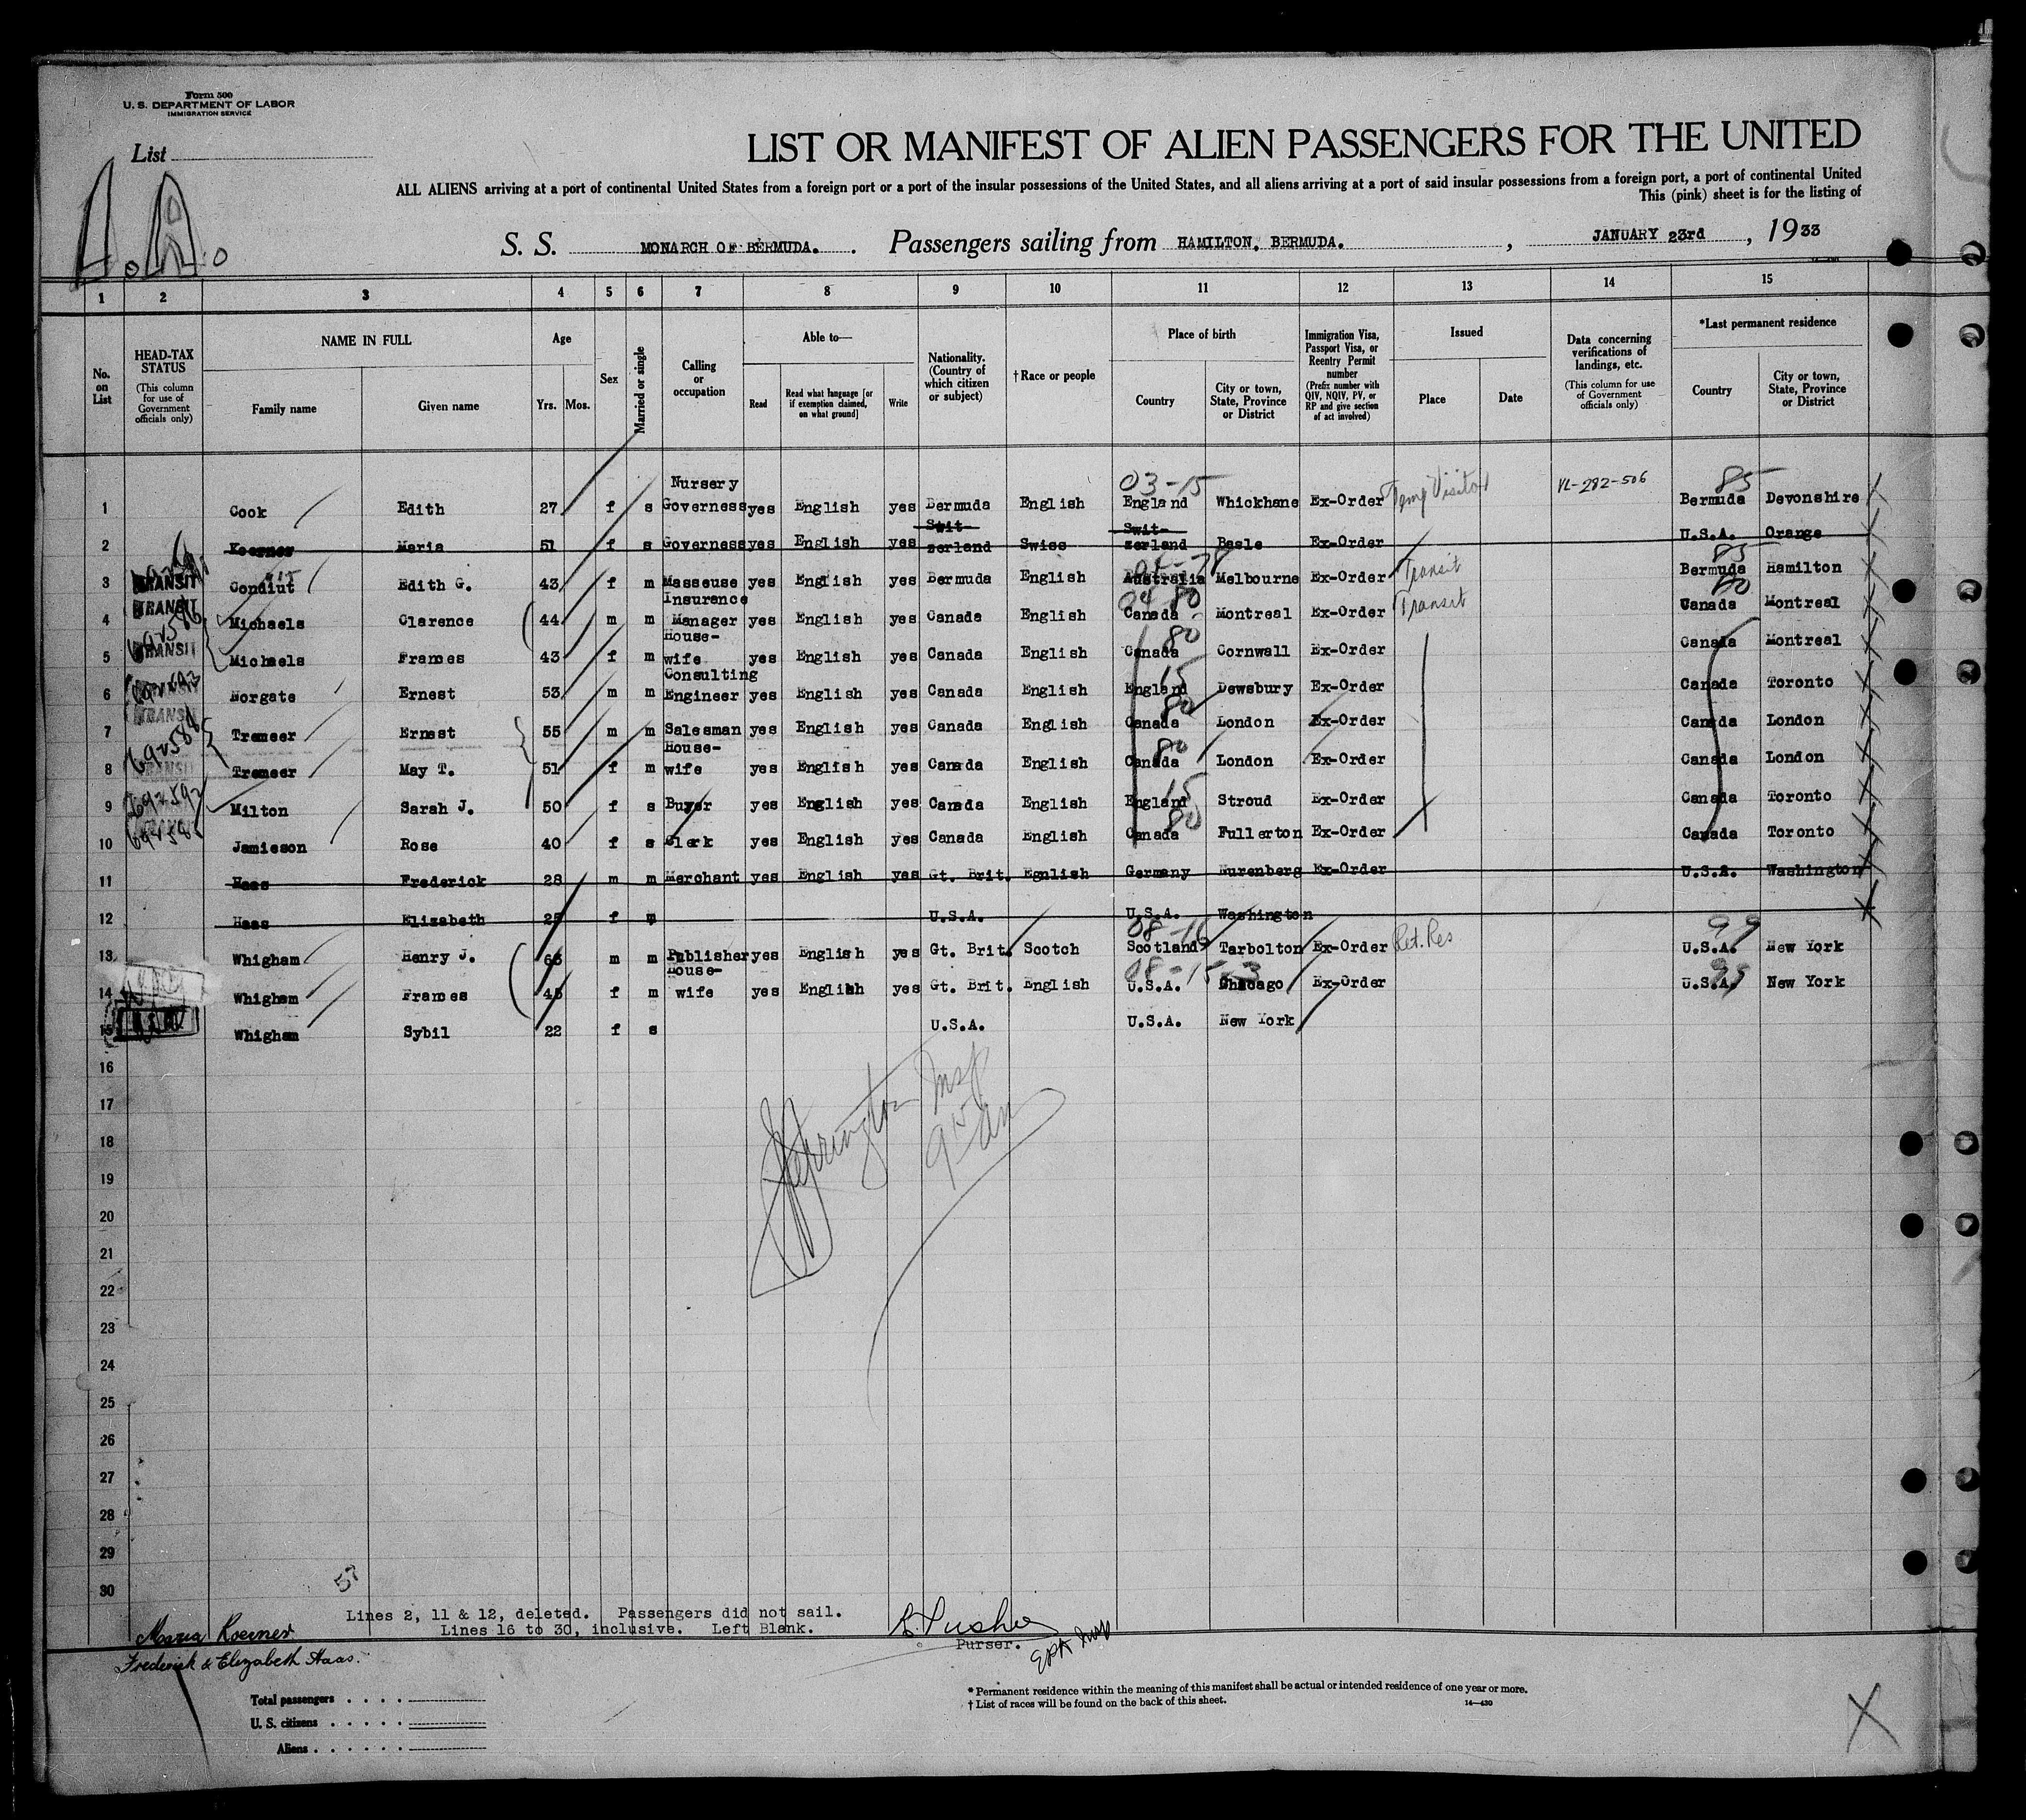 Form 500
U. S. DEPARTMENT OF LABOR
IMMIGRATION SERVICE
List
LIST OR MANIFEST OF ALIEN PASSENGERS FOR THE UNITED
ALL ALIENS arriving at a port of continental United States from a foreign port or a port of the insular possessions of the United States, and all aliens arriving at a port of said insular possessions from a foreign port, a port of continental United
This (pink) sheet is for the listing of
S. S. MONARCH OF BERMUDA. Passengers sailing from HAMILTON, BERMUDA. , JANUARY 23rd , 1933
1 2 3 4 5 6 7 8 9 10 11 12 13 14 15
No. on List
HEAD-TAX STATUS (This column for use of Government officials only)
NAME IN FULL
Family name Given name
Age
Yrs. Mos.
Sex
Married or single
Calling or occupation
Able to—
Read Read what language [or if exemption claimed, on what ground] Write
Nationality. (Country of which citizen or subject)
†Race or people
Place of birth
Country City or town, State, Province or District
Immigration Visa, Passport Visa, or Reentry Permit number (Prefix number with QIV, NQIV, PV, or RP and give section of act involved)
Issued
Place Date
Data concerning verifications of landings, etc. (This column for use of Government officials only)
*Last permanent residence
Country City or town, State, Province or District
03-15 VL-282-506 85
1 Cook Edith 27 f s Nursery Governess yes English yes Bermuda English England Whickhame Ex-Order Temp Visitor Bermuda Devonshire
2 Koerner Maria 51 f s Governess yes English yes Swit-zerland Swiss Swit-zerland Basle Ex-Order U.S.A. Orange
3 TRANSIT Condiut Edith G. 43 f m Masseuse yes English yes Bermuda English Australia Melbourne Ex-Order Transit Bermuda Hamilton
4 TRANSIT Michaels Clarence 44 m m Insurance Manager yes English yes Canada English Canada Montreal Ex-Order Transit Canada Montreal
5 TRANSIT Michaels Frances 43 f m House-wife yes English yes Canada English Canada Cornwall Ex-Order Canada Montreal
6 Norgate Ernest 53 m m Consulting Engineer yes English yes Canada English England Dewsbury Ex-Order Canada Toronto
7 TRANSIT Tremeer Ernest 55 m m Salesman yes English yes Canada English Canada London Ex-Order Canada London
8 TRANSIT Tremeer May T. 51 f m House-wife yes English yes Canada English Canada London Ex-Order Canada London
9 Milton Sarah J. 50 f s Buyer yes English yes Canada English England Stroud Ex-Order Canada Toronto
10 Jamieson Rose 40 f s Clerk yes English yes Canada English Canada Fullerton Ex-Order Canada Toronto
11 Haas Frederick 28 m m Merchant yes English yes Gt. Brit. Egnlish Germany Nurenberg Ex-Order U.S.A. Washington
12 Haas Elizabeth 25 f m U.S.A. U.S.A. Washington
13 Whigham Henry J. 66 m m Publisher yes English yes Gt. Brit. Scotch Scotland Tarbolton Ex-Order Ret. Res U.S.A. New York
14 Whigham Frances 45 f m House-wife yes English yes Gt. Brit. English U.S.A. Chicago Ex-Order U.S.A. New York
15 Whigham Sybil 22 f s U.S.A. U.S.A. New York
16
17
18
19
20
21
22
23
24
25
26
27
28
29
30
57
Lines 2, 11 & 12, deleted. Passengers did not sail.
Lines 16 to 30, inclusive. Left Blank.
Purser.
Maria Koerner
Frederick & Elizabeth Haas.
Total passengers
U. S. citizens
Aliens
* Permanent residence within the meaning of this manifest shall be actual or intended residence of one year or more.
† List of races will be found on the back of this sheet. 14—430